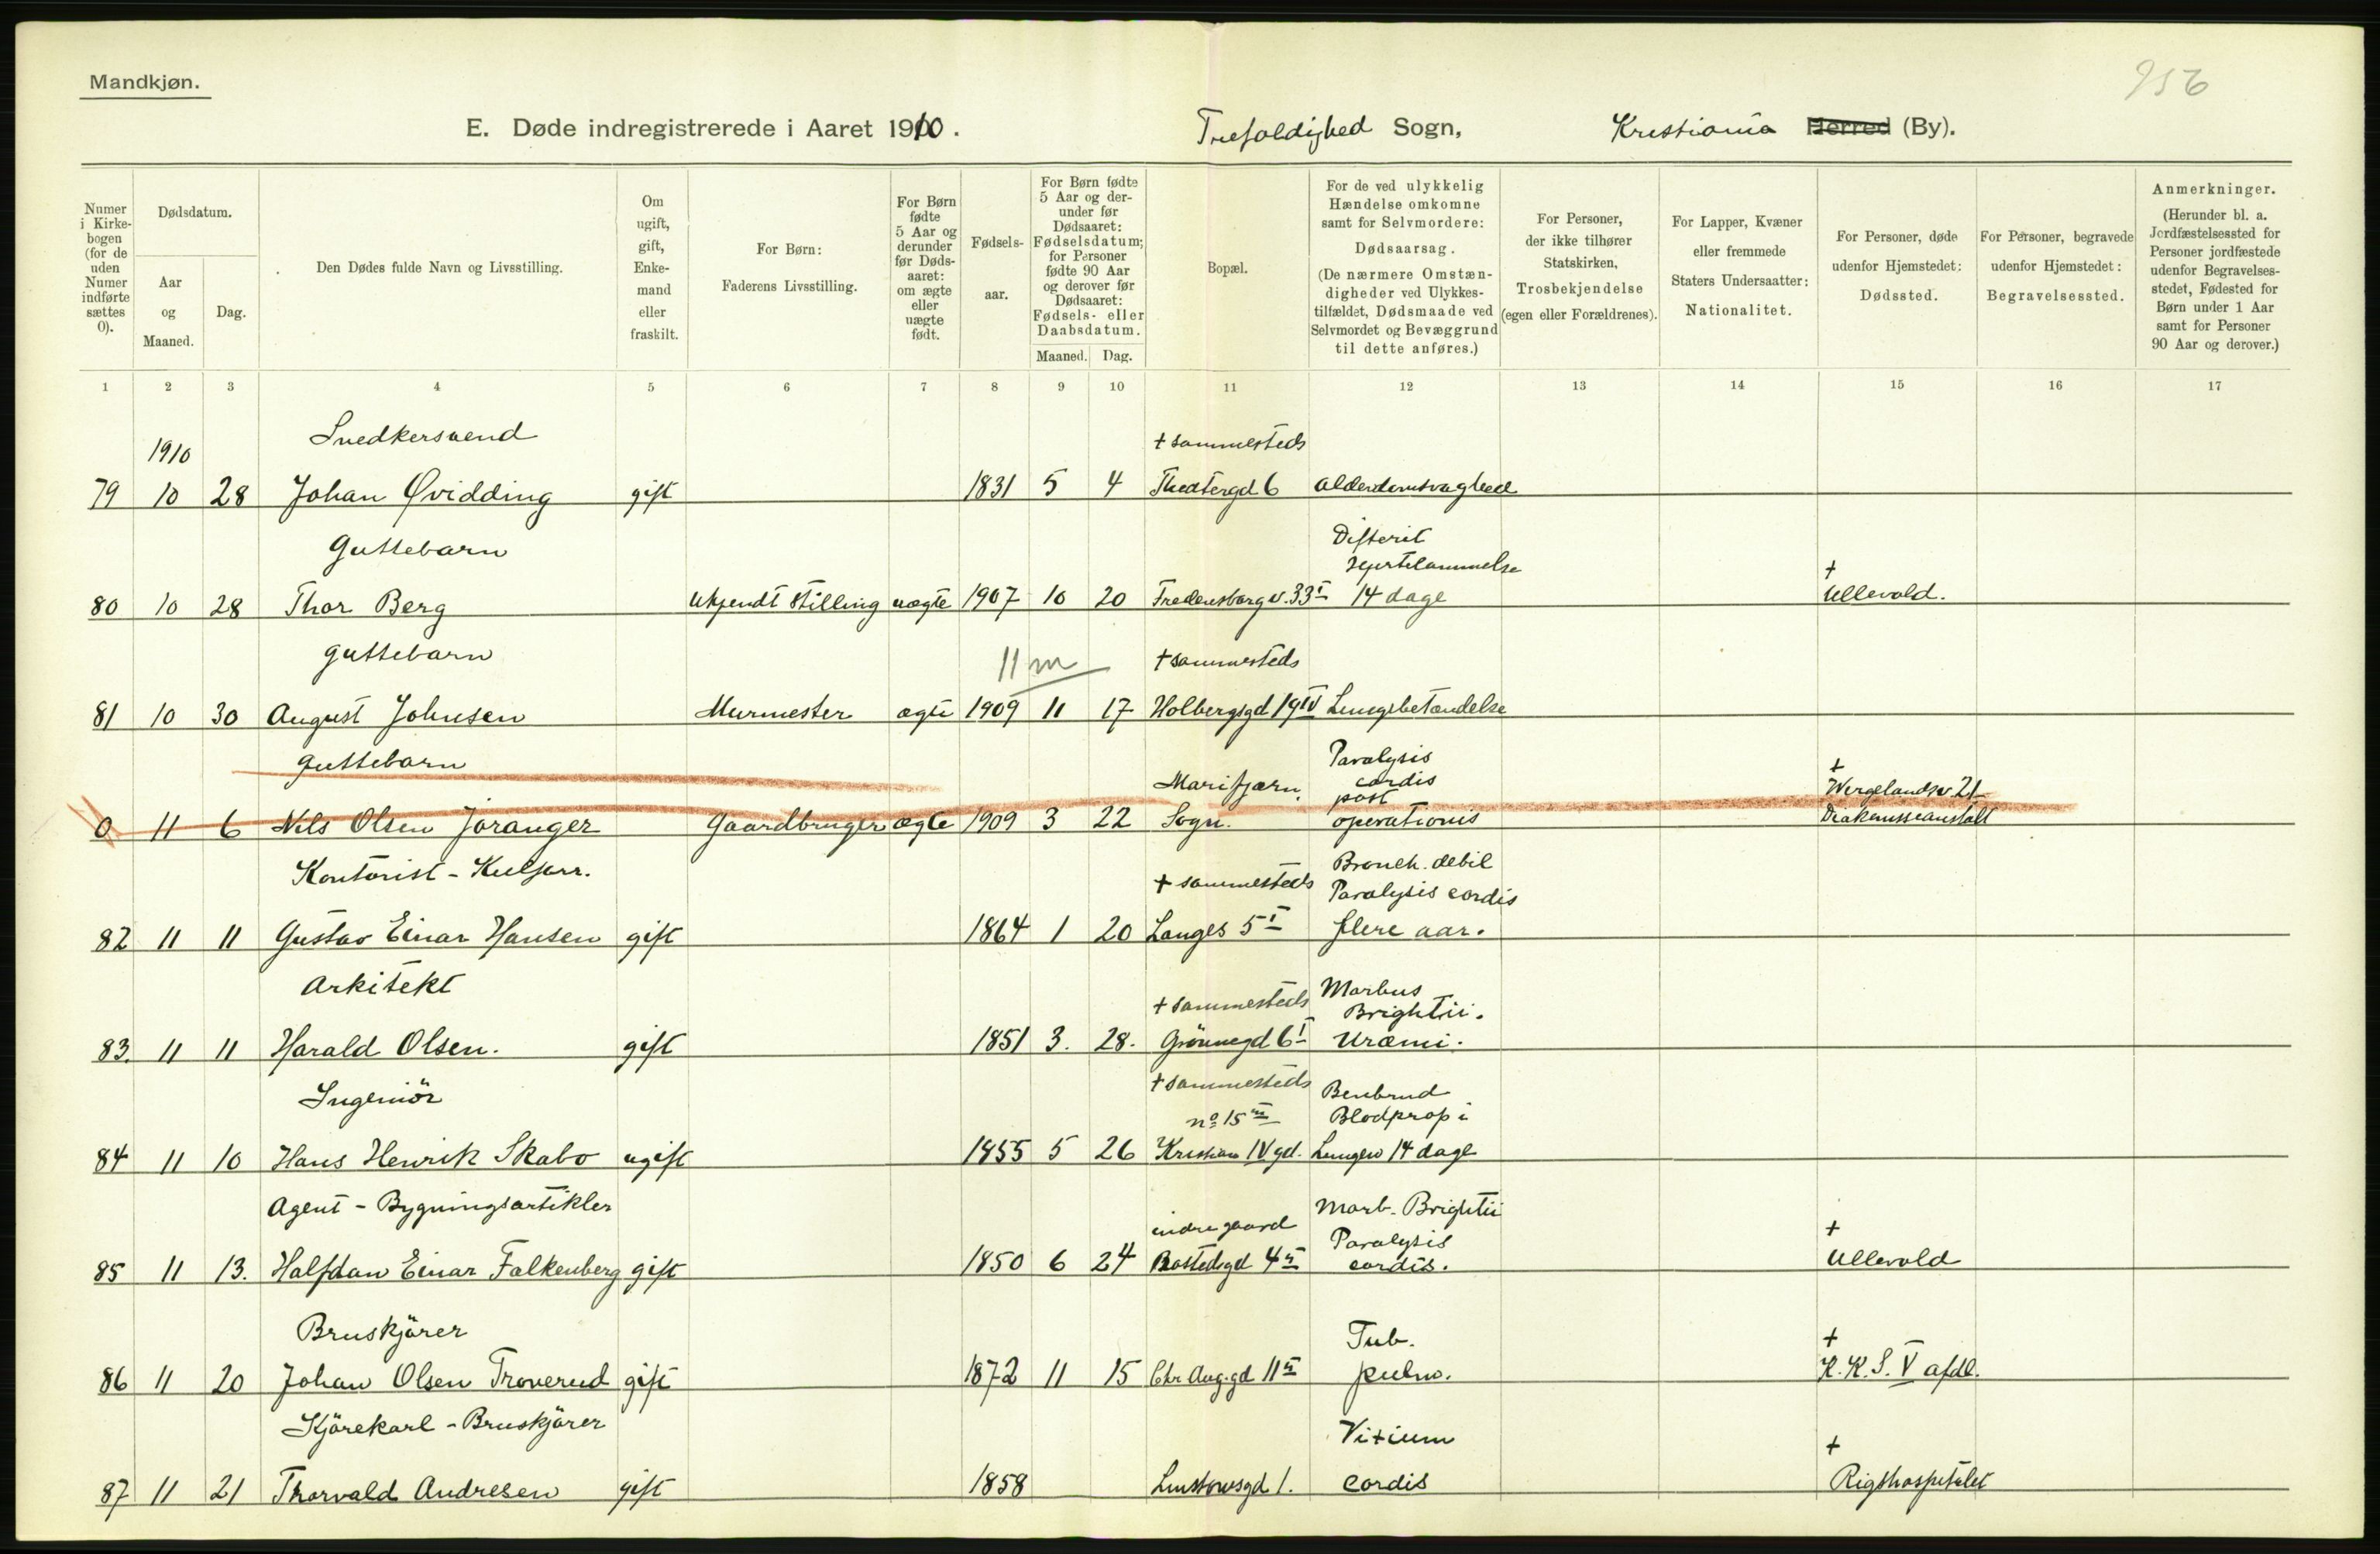 Mandkjøn.
956
E. Døde indregistrerede i Aaret 1910. Trefoldighed Sogn, Kristiania Herred (By).
Numer i Kirkebogen (for de uden Numer indførte sættes 0).
Dødsdatum.
Aar og Maaned.
Dag.
Den Dødes fulde Navn og Livsstilling.
Om ugift, gift, Enkemand eller fraskilt.
For Børn: Faderens Livsstilling.
For Børn fødte 5 Aar og derunder før Dødsaaret: om ægte eller uægte født.
Fødselsaar.
For Børn fødte 5 Aar og derunder før Dødsaaret: Fødselsdatum; for Personer fødte 90 Aar og derover før Dødsaaret: Fødsels- eller Daabsdatum.
Maaned. Dag.
Bopæl.
For de ved ulykkelig Hændelse omkomne samt for Selvmordere: Dødsaarsag. (De nærmere Omstændigheder ved Ulykkestilfældet, Dødsmaade ved Selvmordet og Bevæggrund til dette anføres.)
For Personer, der ikke tilhører Statskirken, Trosbekjendelse (egen eller Forældrenes).
For Lapper, Kvæner eller fremmede Staters Undersaatter: Nationalitet.
For Personer, døde udenfor Hjemstedet: Dødssted.
For Personer, begravede udenfor Hjemstedet: Begravelsessted.
Anmerkninger. (Herunder bl. a. Jordfæstelsessted for Personer jordfæstede udenfor Begravelsesstedet, Fødested for Børn under 1 Aar samt for Personer 90 Aar og derover.)
1 2 3 4 5 6 7 8 9 10 11 12 13 14 15 16 17
1910 Snedkersvend + sammesteds
79 10 28 Johan Qvidding gift 1831 5 4 Theatergd 6 Alderdomsvaghed
Guttebarn Difterit
Hjertelammelse +
80 10 28 Thor Berg Ukjendt stilling uægte 1907 10 20 Fredensborg v. 33 I 14 dage Ullevold.
Guttebarn 11 m + sammesteds
81 10 30 August Johnsen Murmester ægte 1909 11 17 Holbergsgd 19 IV Lungebetændelse
Guttebarn Marifjæren, Paralysis cordis post + Wergelandsv. 21
0 11 6 Nils Olsen Joranger Gaardbruger ægte 1909 3 22 Sogn. operationis Diakonisseanstalt
Kontorist - Kulforr. + sammesteds Bronch. debil
Paralysis cordis
82 11 11 Gustav Einar Hansen gift 1864 1 20 Langes 5 I flere aar.
Arkitekt + sammesteds Morbus
Brightii.
83. 11 11 Harald Olsen. gift 1851 3. 28. Grönnegd 6 I Uræmi.
Ingeniör + sammesteds Benbrud
no 15 III Blodprop i
84 11 10 Hans Henrik Skabo ugift 1855 5 26 Kristian IV gd. Lungen 14 dage
Agent - Bygningsartikler indre gaard Morb. Brightii
Paralysis +
85 11 13. Halfdan Einar Falkenberg gift 1850 6 24 Rostedsgd 4 II cordis. Ullevold
Bruskjörer Tub. +
86 11 20 Johan Olsen Troverud gift 1872 11 15 Chr Aug.gd 11 II pulm. K. K. S. V afdl.
Kjörekarl - Bruskjörer Vitium +
87 11 21 Thorvald Andresen gift 1858 Linstowsgd 1. cordis Rigshospitalet